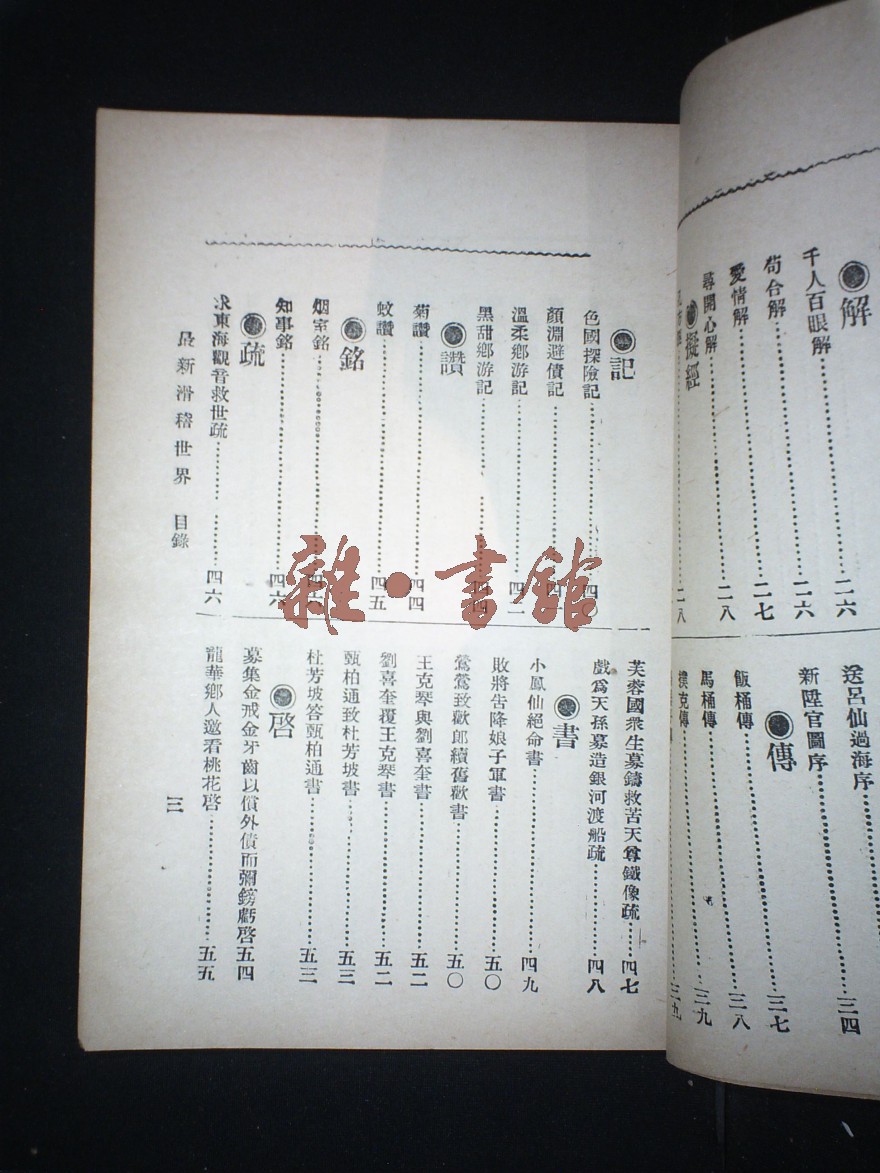 解
千人百眼解 二六
苟合解 二六
愛情解 二七
尋開心解 二八
擬經
二八
送呂仙過海序
新陞官圖序 三四
傳
飯桶傳 三七
馬桶傳 三八
撲克傳 三九
三九
記
色國探險記 四
顏淵避債記
溫柔鄉游記 四二
黑甜鄉游記
讚
菊讚 四四
蚊讚 四五
銘
烟室銘
知事銘 四六
疏
求東海觀音救世疏 四六
芙蓉國衆生募鑄救苦天尊鐵像疏 四七
戲爲天孫募造銀河渡船疏 四八
書
小鳳仙絕命書 四九
敗將告降娘子軍書 五〇
鶯鶯致歡郎續舊歡書 五〇
王克琴與劉喜奎書 五二
劉喜奎覆王克琴書 五二
甄柏通致杜芳坡書 五三
杜芳坡答甄柏通書 五三
啓
募集金戒金牙齒以償外債而彌鎊虧啓 五四
龍華鄉人邀看桃花啓 五五
最新滑稽世界 目錄
三
雜·書館